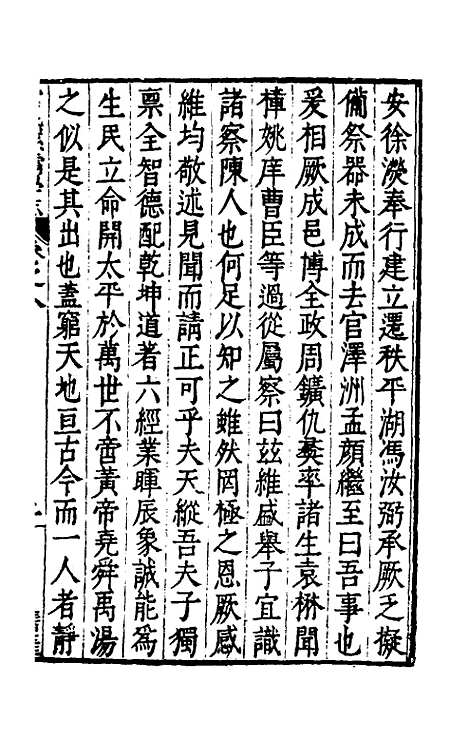 安徐濙奉行建立遷秩平湖馮汝弼承厥乏擬
備祭器未成而去官澤洲孟顔繼至曰吾事也
爰相厥成邑博全政周鑛仇藂率諸生袁楙聞
樟姚庠曹臣等過從屬察曰玆維盛舉子宜識
諸察陳人也何足以知之雖然罔極之恩厥感
維均敬述見聞而請正可乎夫天縱吾夫子獨
禀全智德配乾坤道著六經業暉辰象誠能爲
生民立命開太平於萬世不啻黃帝堯舜禹湯
之似是其出也蓋窮天地亘古今而一人者靜